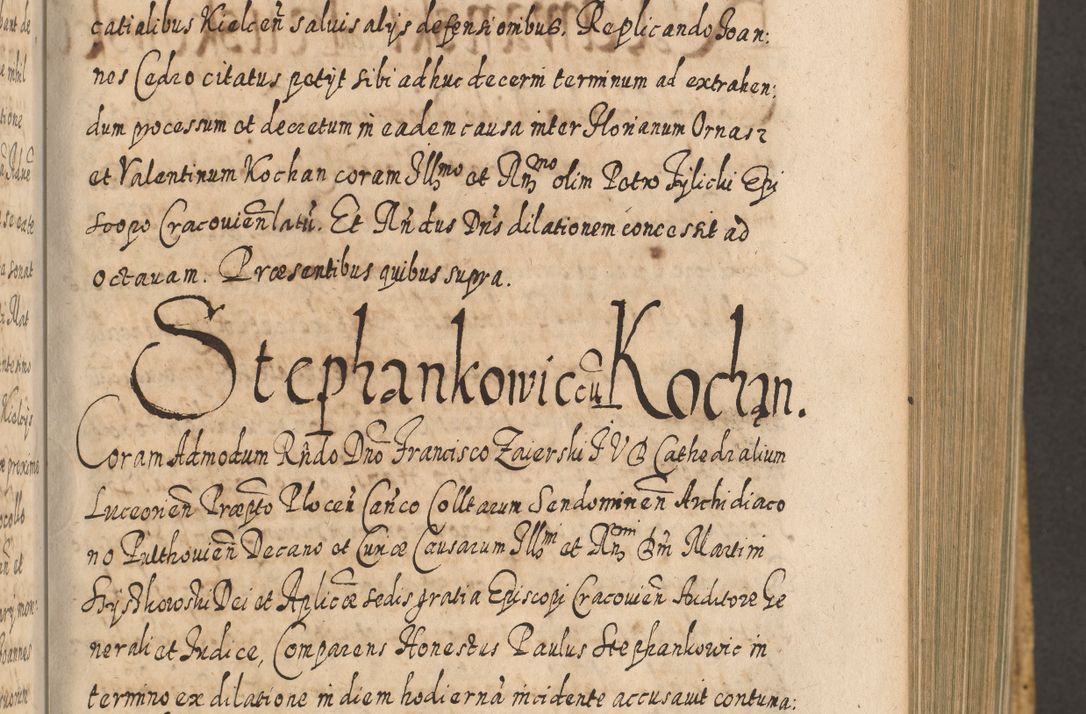 catialibus Kielceñ saluis alijs defensionibus. Replicando Joan:
nes Cedro citatus petijt sibi adhuc decerni terminum ad extrahen:
dum processum et decretum in eadem causa inter Florianum Ornasz
et Valentinum Kochan coram Illmo et Rmo olim Petro Tylicki Epi
scopo Cracovieñ latū. Et Rñdus Dñs dilationem concessit ad
octauam. Præsentibus quibus supra.
Stephankowic cū Kochan.
Coram Admodum Rñdo Dño Francisco Zaierski I V D Cathedralium
Luceorieñ Præpto Ploceñ Cañco Colltarum Sendomirieñ Archidiaco
no Pulthovieñ Decano et Curiæ Causarum Illmi et Rmi Dñi Martini
Szyszkowski Dei et Aplicæ sedis gratia Episcopi Cracovieñ Auditore Ge
nerali et Judice, Comparens Honestus Paulus Stephankowic in
termino ex dilatione in diem hodiernã incidente accusauit contuma: